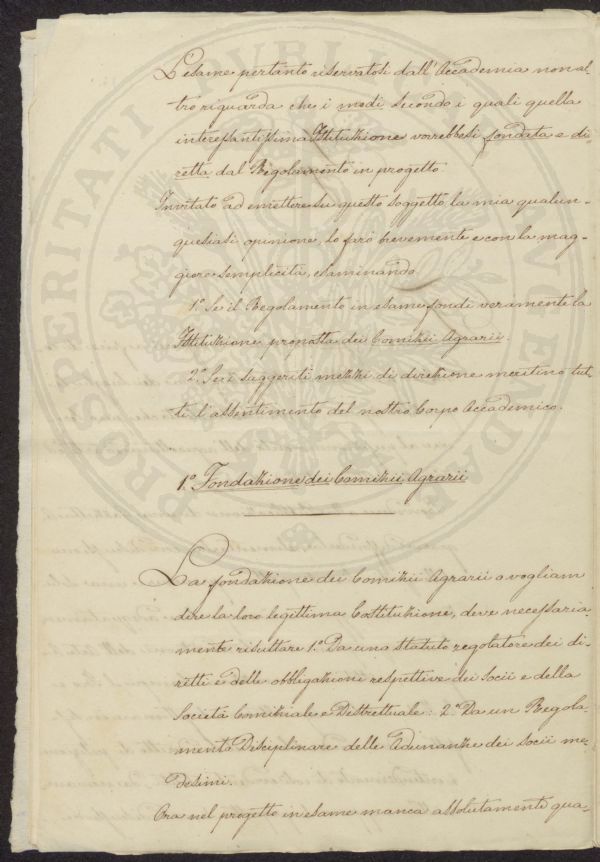 L'esame pertanto riservatosi dall'Accademia non al-
tro riguarda che i modi secondo i quali quella
interessantissima Istituzione vorrebbesi fondata e di-
retta dal Regolamento in progetto.
Invitato ad emettere su questo soggetto la mia qualun-
quesiasi opinione, lo farò brevemente e con la mag-
giore semplicità, esaminando
1.° Se il Regolamento in esame fondi veramente la
Istituzione proposta dei Comizii Agrarii.
2.° Se i suggeriti mezzi di direzione meritino tut-
ti l'assentimento del nostro Corpo Accademico.
1.° Fondazione dei Comizii Agrarii
La fondazione dei Comizii Agrarii o vogliam
dire la loro legittima Costituzione, deve necessaria
mente risultare 1.° Da uno statuto regolatore dei di-
ritti e delle obbligazioni respettive dei Socii e della
Società Comiziale e Distrettuale: 2.° Da un Regola-
mento Disciplinare delle Adunanze dei socii me-
desimi.
Ora nel progetto in esame manca assolutamente qua-
PROSPERITATI PUBLICAE AUGENDAE